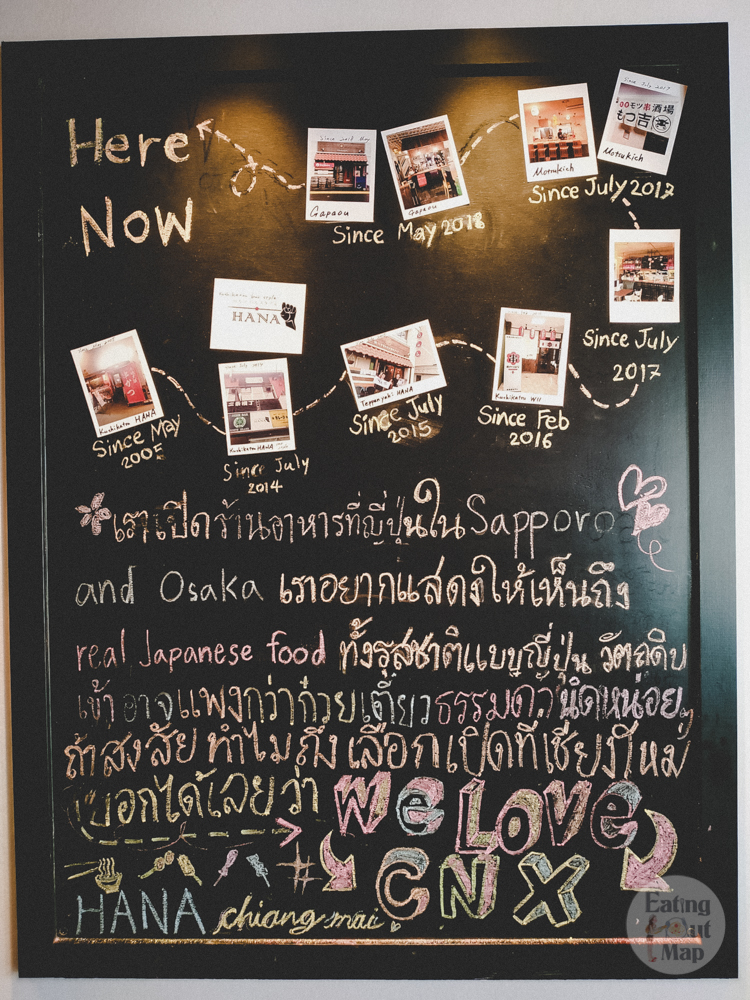 Here
Now
Since 2018 May
Gapaou
Gapaou
Since May 2018
Motsukich
Since July 2017
モツ串酒場
もつ吉
Motsukich
Since July 2017
Since July
2017
HANA
Kushikatsu HANA
Since May
2005
Since July 2014
Kushikatsu HANA
Since July
2014
Teppanyaki HANA
Since July
2015
Kushikatsu WII
Since Feb
2016
เราเปิดร้านอาหารที่ญี่ปุ่นใน Sapporo
and Osaka เราอยากแสดงให้เห็นถึง
real Japanese food ทั้งรสชาติแบบญี่ปุ่น วัตถุดิบ
เข้าอาจแพงกว่าก๋วยเตี๋ยวธรรมดานิดหน่อย
ถ้าสงสัย ทำไมถึงเลือกเปิดที่เชียงใหม่
บอกได้เลยว่า We Love
# CNX
HANA chiang mai
Eating
Out
Map